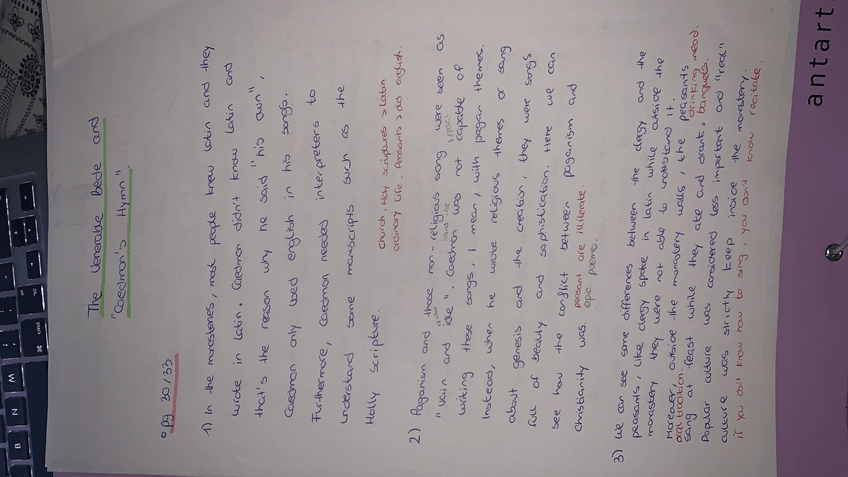 The Venerable Bede and
"Caedmon's Hymn".
° pg 30/33
1) In the monasteries, most people knew latin and they
wrote in latin. Caedmon didn't know latin and
that's the reason why he said "his own",
Caedmon only used english in his songs.
Furthermore, Caedmon needed interpreters to
understand some manuscripts such as the
Holly scripture.
church. Holy scriptures > Latin
ordinary life. Peasants > old english.
2) Paganism and those non-religious song were seen as
"vain and idle". Caedmon was not capable of
writing these songs, I mean, with pagan themes.
Instead, when he wrote religious themes or song
about genesis and the creation, they were songs
full of beauty and sophistication. Here we can
see how the conflict between paganism and
christianity was.
peasant are illiterate
epic poems.
3) We can see some differences between the clergy and the
peasants, like clergy spoke in latin while outside the
monastery they were not able to understand it.
Moreover, outside the monastery walls, the peasants
oral tradition.
sang at feast while they ate and drank.
drinking mead.
banquets.
Popular culture was considered less important and "real"
culture was strictly keep inside the monastery.
if you don't know how to sing, you don't know recitate.
antart
cmd
M
N
B